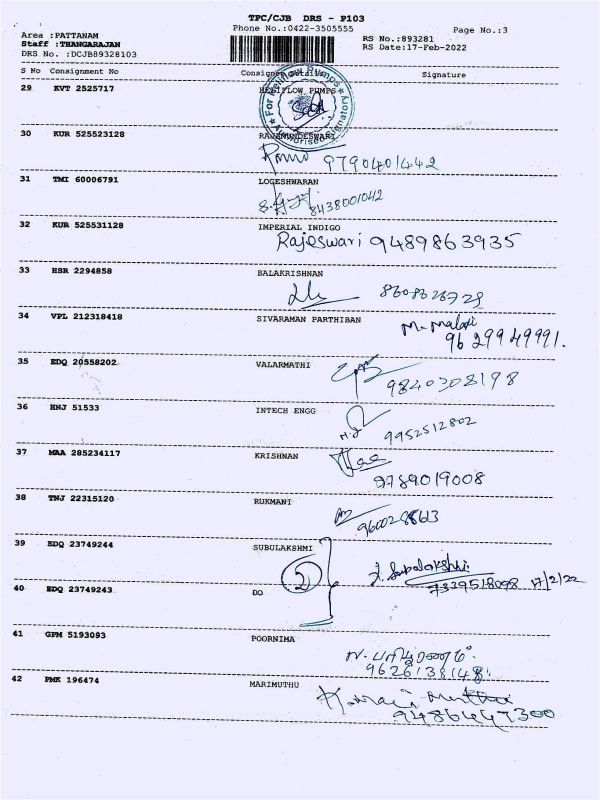 TPC/CJB DRS - P103
Phone No.:0422-3505555
Page No.:3
Area :PATTANAM
RS No.:893281
Staff :THANGARAJAN
RS Date:17-Feb-2022
DRS No. :DCJB89328103
S No Consignment No Consignee Details Signature
29 KVT 2525717 HELIFLOW PUMPS
30 KUR 525523128 RAJAMUNDESWARI
9790401442
31 TMI 60006791 LOGESHWARAN
8438001042
32 KUR 525531128 IMPERIAL INDIGO
Rajeswari 9489863935
33 HSR 2294858 BALAKRISHNAN
8608626729
34 VPL 212318418 SIVARAMAN PARTHIBAN
M. Malathi
9629949991.
35 EDQ 20558202 VALARMATHI
9840308198
36 HNJ 51533 INTECH ENGG
9952512802
37 MAA 285234117 KRISHNAN
9789019008
38 TNJ 22315120 RUKMANI
39 EDQ 23749244 SUBULAKSHMI
2
Subalakshmi
7339518098 17/2/22
40 EDQ 23749243 DO
41 GPM 5193093 POORNIMA
9626138148
42 PMK 196474 MARIMUTHU
9486447300